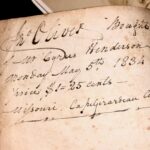 Oliver Bought
of Mr Cyrus Henderson
Monday May 5th 1834
Price $1=25 cents
Missouri, Cape girardeau